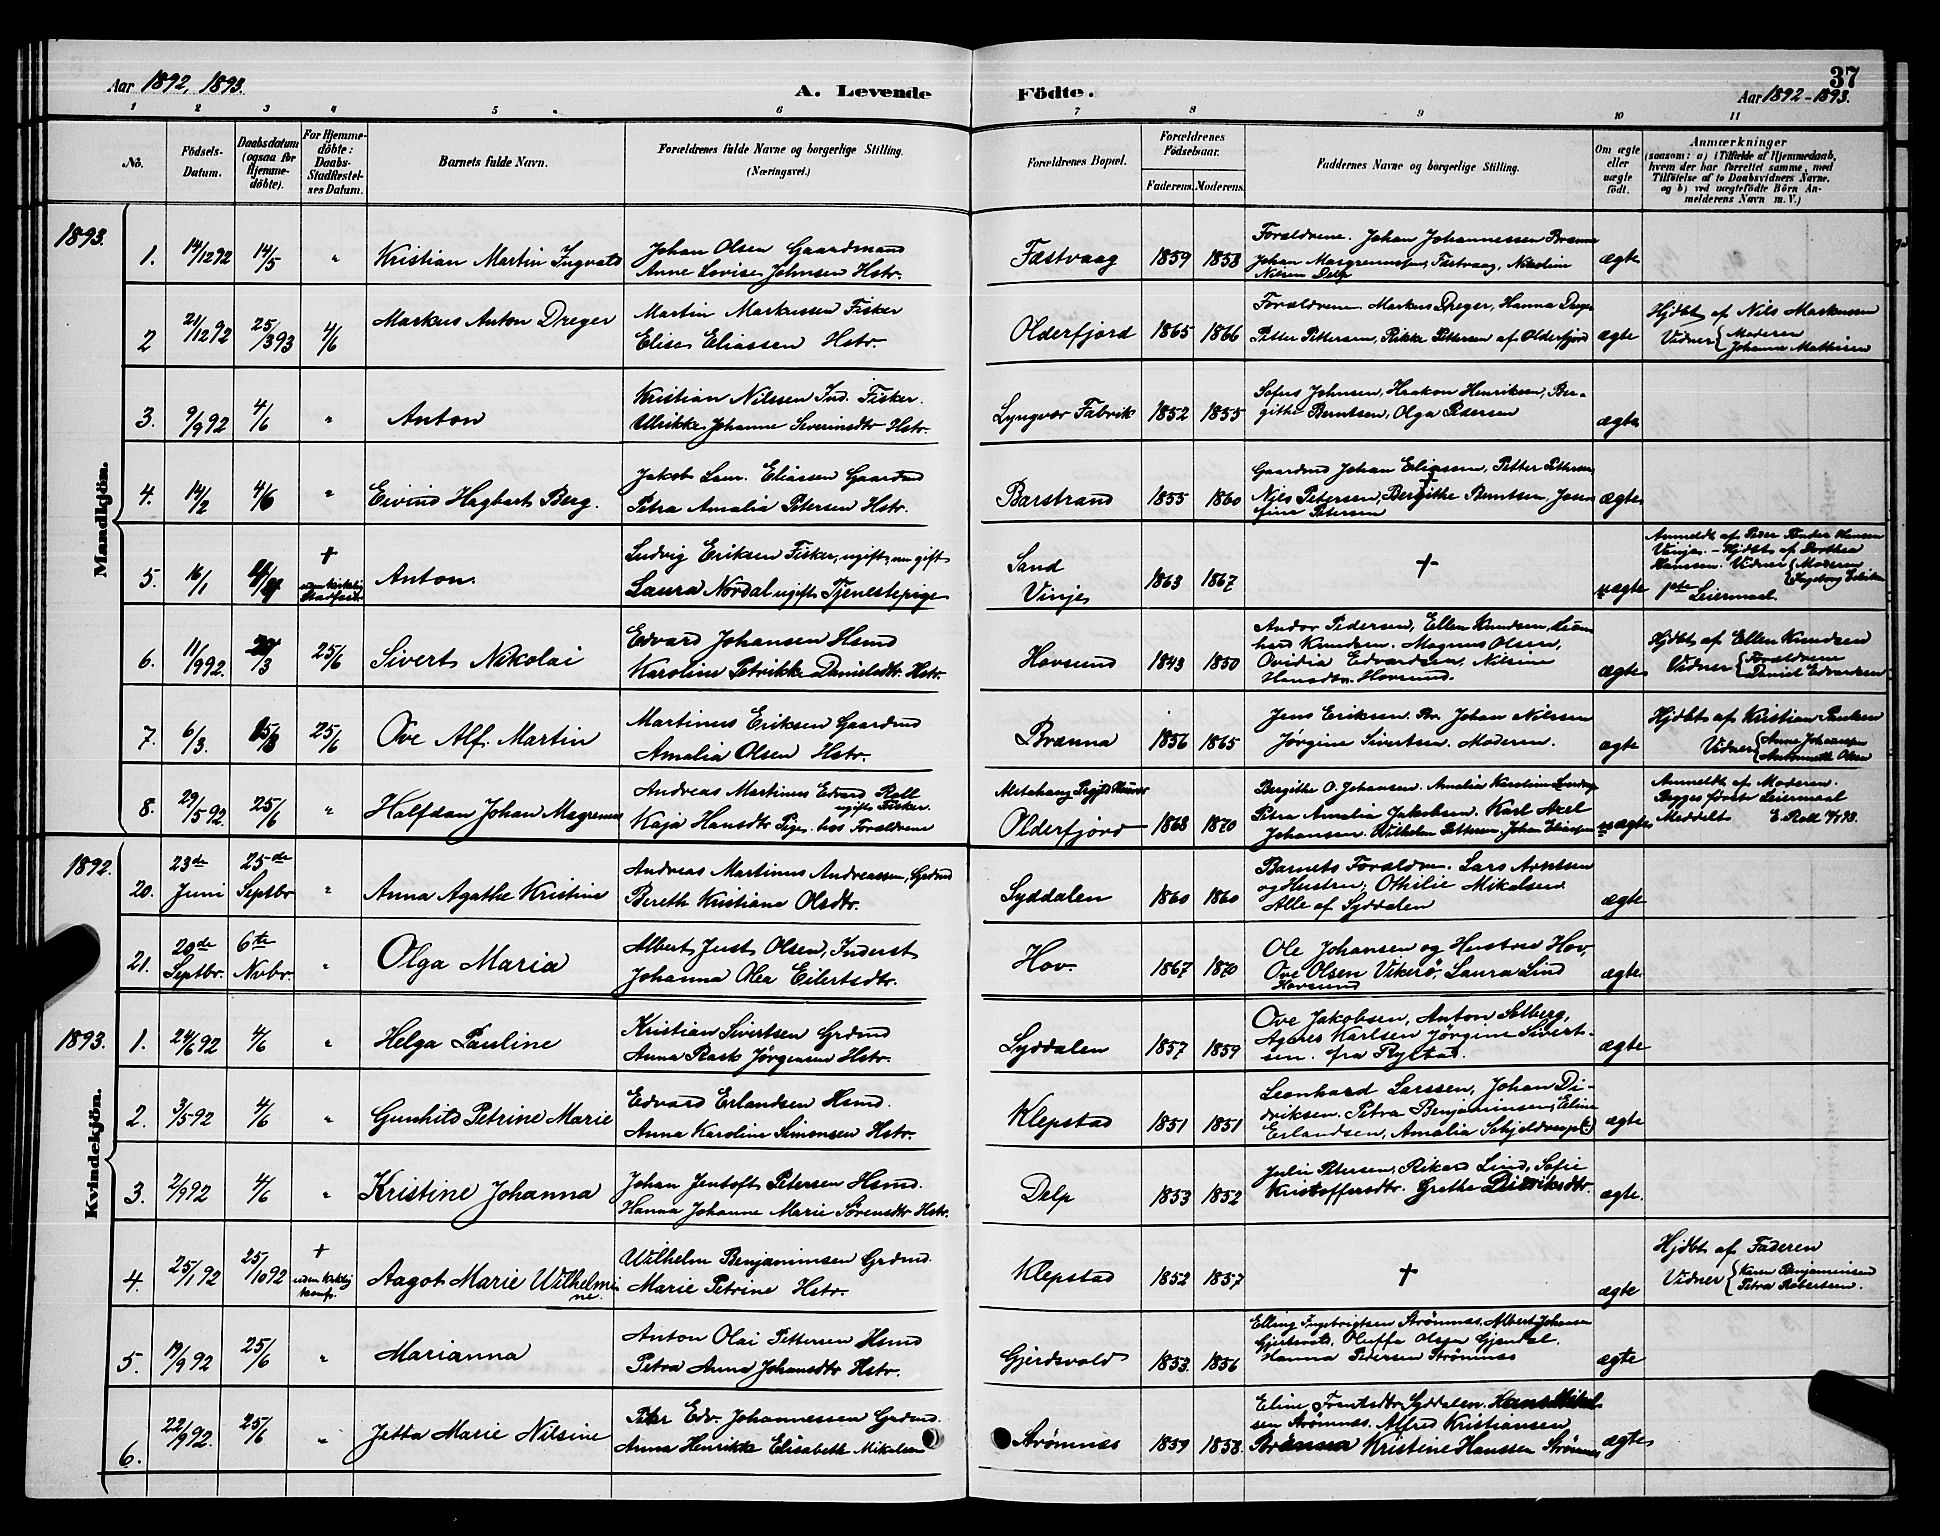 Aar 1892, 1893.
A. Levende
Födte.
37
Aar 1892-1893.
1 2 3 4 5 6 7 8 9 10 11
No. Födsels-Datum. Daabsdatum (ogsaa for Hjemme-döbte). For Hjemme-döbte: Daabs-Stadfæstel-ses Datum. Barnets fulde Navn. Forældrenes fulde Navne og borgerlige Stilling. (Næringsvei.) Forældrenes Bopæl. Forældrenes Födselsaar. Faderens. Moderens. Faddernes Navne og borgerlige Stilling. Om ægte eller uægte födt. Anmærkninger (saasom: a) i Tilfælde af Hjemmedaab, hvem der har forrettet samme, med Tilföielse af to Daabsvidners Navne, og b) ved uægtefödte Börn An-melderens Navn m. V.)
Mandkjön.
1893.
1. 14/12 92 14/5 " Kristian Martin Ingvald Johan Olsen Gaardmand
Anne Lovise Johnsen Hstr. Fæstvaag 1859 1858 Forældrene. Johan Johannessen Brænna
Johan Fæstvaag, Nikoline
Nilsen Delp ægte
2 21/12 92 25/3 93 4/6 Markus Anton Dreyer Martin Markussen Fisker
Elise Eliassen Hstr. Olderfjord 1865 1866 Forældrene Markus Dreyer, Hanna Dreyer
Petter Pettersen, Rikke Pettersen af Olderfjord ægte Hjdbt af Nils Markussen
Vidner Moderen
Johanna Mathisen
3. 9/9 92 4/6 " Anton Kristian Nilssen Ind. Fisker.
Ulrikke Johanne Severinsdtr Hstr. Lyngvær Fabrik 1852 1855 Sofus Johnsen, Haakon Henriksen, Ber-
githe Berntsen, Olga Pedersen ægte
4. 14/2 4/6 " Eivind Hagbart Berg. Jakob Sam. Eliassen Gaardmd
Petra Amalia Petersen Hstr. Barstrand 1855 1860 Gaardmd Johan Eliassen, Petter Pettersen
Nils Petersen, Bergithe Berntsen, Jose-
fine Petersen ægte
5. 16/1 + uden kirkelig Stadfæst. Anton. Ludvig Eriksen Fisker, ugift, nu gift
Laura Nordal ugift Tjenestepige Sand
Vinje 1863 1867 + uægte Anmeldt af Peder Hansen
Vinje. - Hjdbt af Dorthea
Hanssen. Vidner Moderen
Ingeborg
1ste Leiermaal.
6. 11/9 92. 25/6 Sivert Nikolai Edvard Johansen Hsmd
Karoline Petrikke Danielsdtr. Hstr. Hovsund 1843 1850 Andor Pedersen, Ellen Knudsen, Leon-
hard Knudsen. Magnus Olsen,
Ovidia Edvardsen, Nilsine
Hansdtr. Hovsund. ægte Hjdbt af Ellen Knudsen
Vidner Forældrene
Daniel Edvardsen
7. 6/3. 25/6 Ove Alf. Martin Martinus Eriksen Gaardmd
Amalia Olsen Hstr. Brænna 1856 1865 Jens Eriksen. Br. Johan Nilssen
Jörgine Sivertsen. Moderen. ægte Hjdbt af Kristian Paulsen
Vidner Anne Johansen
Antonette Olsen
8. 29/5 92. 25/6 " Halfdan Johan Magrenus Andreas Martinus Edvard Roll
ugift Fisker.
Kaja Hansdtr Pige hos Forældrene Alstahaug
Olderfjord 1868 1870 Bergithe O. Johansen. Amalia Karoline
Petra Amalia Jakobsen. Karl Axel
Johansen. Wilhelm Pettersen, Johan Eliassen uægte Anmeldt af Moderen.
Begges förste Leiermaal
Meddelt
1892.
20. 23de Juni 25de Septbr " Anna Agathe Kristine Andreas Martinus Andreassen, Grdmd
Bereth Kristiane Olsdtr. Syddalen 1860 1860 Barnets Forældre. Lars Arntsen
og Hustru, Othilie Mikalsen.
Alle af Syddalen ægte
21. 20de Septbr. 6te Nvbr. " Olga Maria Albert Just Olsen, Inderst
Johanna Olea Eilertsdtr. Hov. 1867 1870 Ole Johansen og Hustru Hov,
Ove Olsen Vikerö, Laura Lind
Hovsund ægte
Kvindekjön.
1893.
1. 24/6 92 4/6 " Helga Pauline Kristian Sivertsen Grdmd
Anna Rask Jørgensen Hstr. Syddalen 1857 1859 Ove Jakobsen, Anton Solberg,
Agnes Karlsen Jörgine Sivert-
sen. fra Rystad. ægte
2. 3/5 92 4/6 " Gunhild Petrine Marie Edvard Erlandsen Hsmd.
Anna Karoline Simonsen Hstr. Klepstad 1851 1851 Leonhard Larssen, Johan Di-
driksen. Petra Benjaminsen, Eline
Erlandsen, Amalia Schjeldrup ægte
3. 2/9 92 4/6 " Kristine Johanna Johan Jentoft Petersen Hsmd.
Hanna Johanne Marie Sørensdtr Hstr. Delp 1853 1852 Julie Petersen, Rikard Lind, Sofie
Kristoffersdtr. Grethe Didriksdtr. ægte.
4. 25/1 92 25/10 92 + uden kirkelig Aagot Marie Wilhelmi-
ne. Wilhelm Benjaminsen Grdmd.
Marie Petrine Hstr. Klepstad 1852 1857 + ægte Hjdbt af Faderen
Vidner Karen Benjaminsen
Petra Robertsen.
5. 19/9 92 25/6 " Marianna Anton Olai Pettersen Hsmd
Petra Anna Johansdtr Hstr. Gjerdsvold 1853. 1856 Elling Ingebrigtsen Strömnæs, Albert Johansen
Gjertsvold, Oluffa Olsen Gjendal.
Hanna Pedersen Strömnæs ægte
6. 22/9 92. 25/6 " Jetta Marie Nilsine Peter Edv. Johannessen Grdmd.
Anna Henrikke Elisabeth Mikalsen Strömnæs 1859 1858. Eline Syddalen. Hans Mikal-
sen Strömnæs. Alfred Kristiansen
Brænna Kristine Hanssen Strömnæs ægte